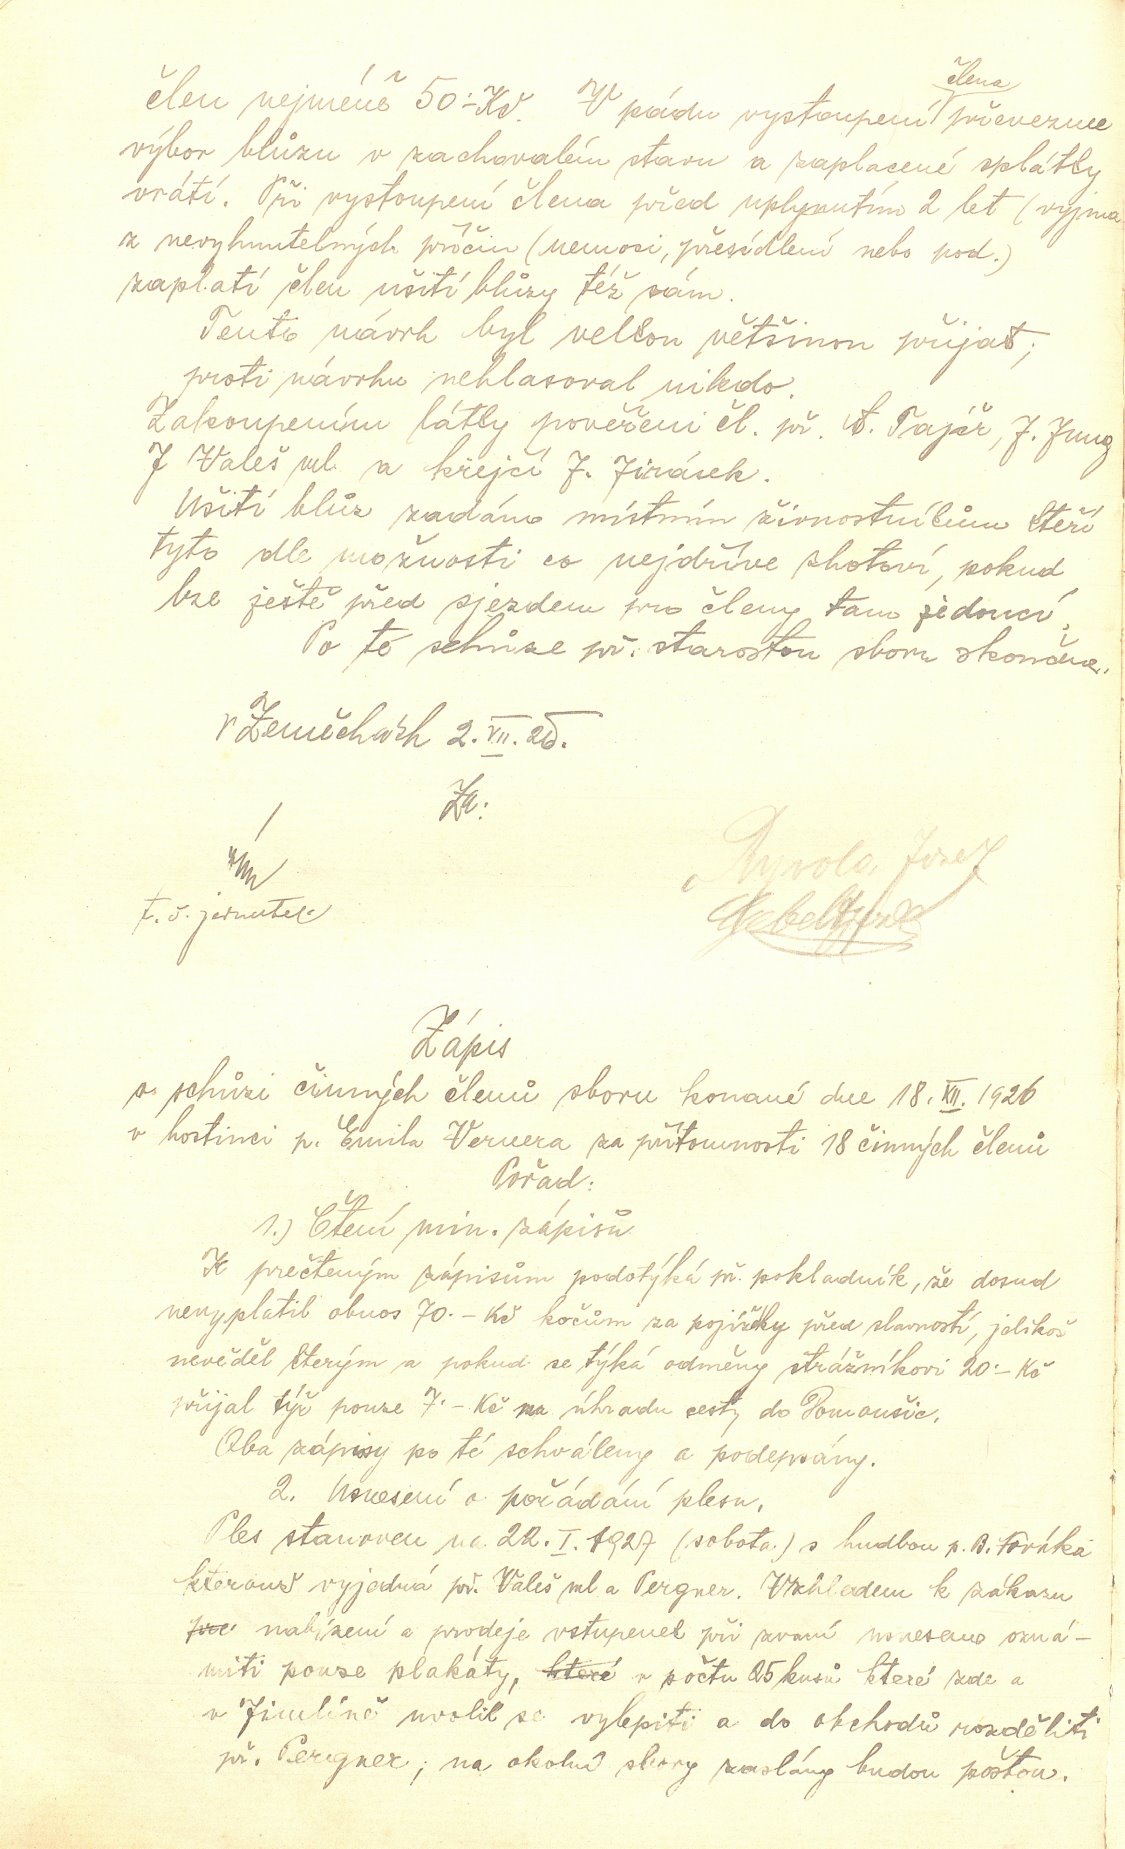 člen nejméně 50·– Kč. V pádu vystoupení člena převezme
výbor blůzu v zachovalém stavu a zaplacené splátky
vrátí. Při vystoupení člena před uplynutím 2 let (vyjma
z nevyhnutelných příčin (nemoci, přesídlení nebo pod.)
zaplatí člen ušití blůzy též sám.
Tento návrh byl velkou většinou přijat;
proti návrhu nehlasoval nikdo.
Zakoupením látky pověřeni čl. př. A. Tajčr, J. Jung
J Valeš ml. a krejčí J. Jirásek.
Ušití blůz zadáno místním živnostníkům kteří
tyto dle možnosti co nejdříve zhotoví, pokud
lze ještě před sjezdem pro členy tam jedoucí.
Po té schůze př. starostou sboru skončena.
V Zeměchách 2. VII. 26.
Za:
t. č. jednatel
Ryvola Josef
Zápis
o schůzi činných členů sboru konané dne 18. XII. 1926
v hostinci p. Emila Vernera za přítomnosti 18 činných členů
Pořad:
1.) Čtení min. zápisů
K prečteným zápisům podotýká př. pokladník, že dosud
nevyplatil obnos 70·– Kč kočům za pojížďky před slavností, jelikož
nevěděl kterým a pokud se týká odměny strážníkovi 20·– Kč
přijal týž pouze 7·– Kč na úhradu cesty do Domoušic.
Oba zápisy po té schváleny a podepsány.
2. Usnesení o pořádání plesu.
Ples stanoven na 22. I. 1927 (sobota) s hudbou p. B. Forška
kterouž vyjedná př. Valeš ml a Pergner. Vzhledem k zákazu
pro nabízení a prodeje vstupenek při zvaní usneseno ozná–
miti pouze plakáty, které v počtu 25 kusů které zde a
v Jimlíně uvolil se vylepiti a do obchodů rozděliti
př. Pergner; na okolní sbory zaslány budou poštou.